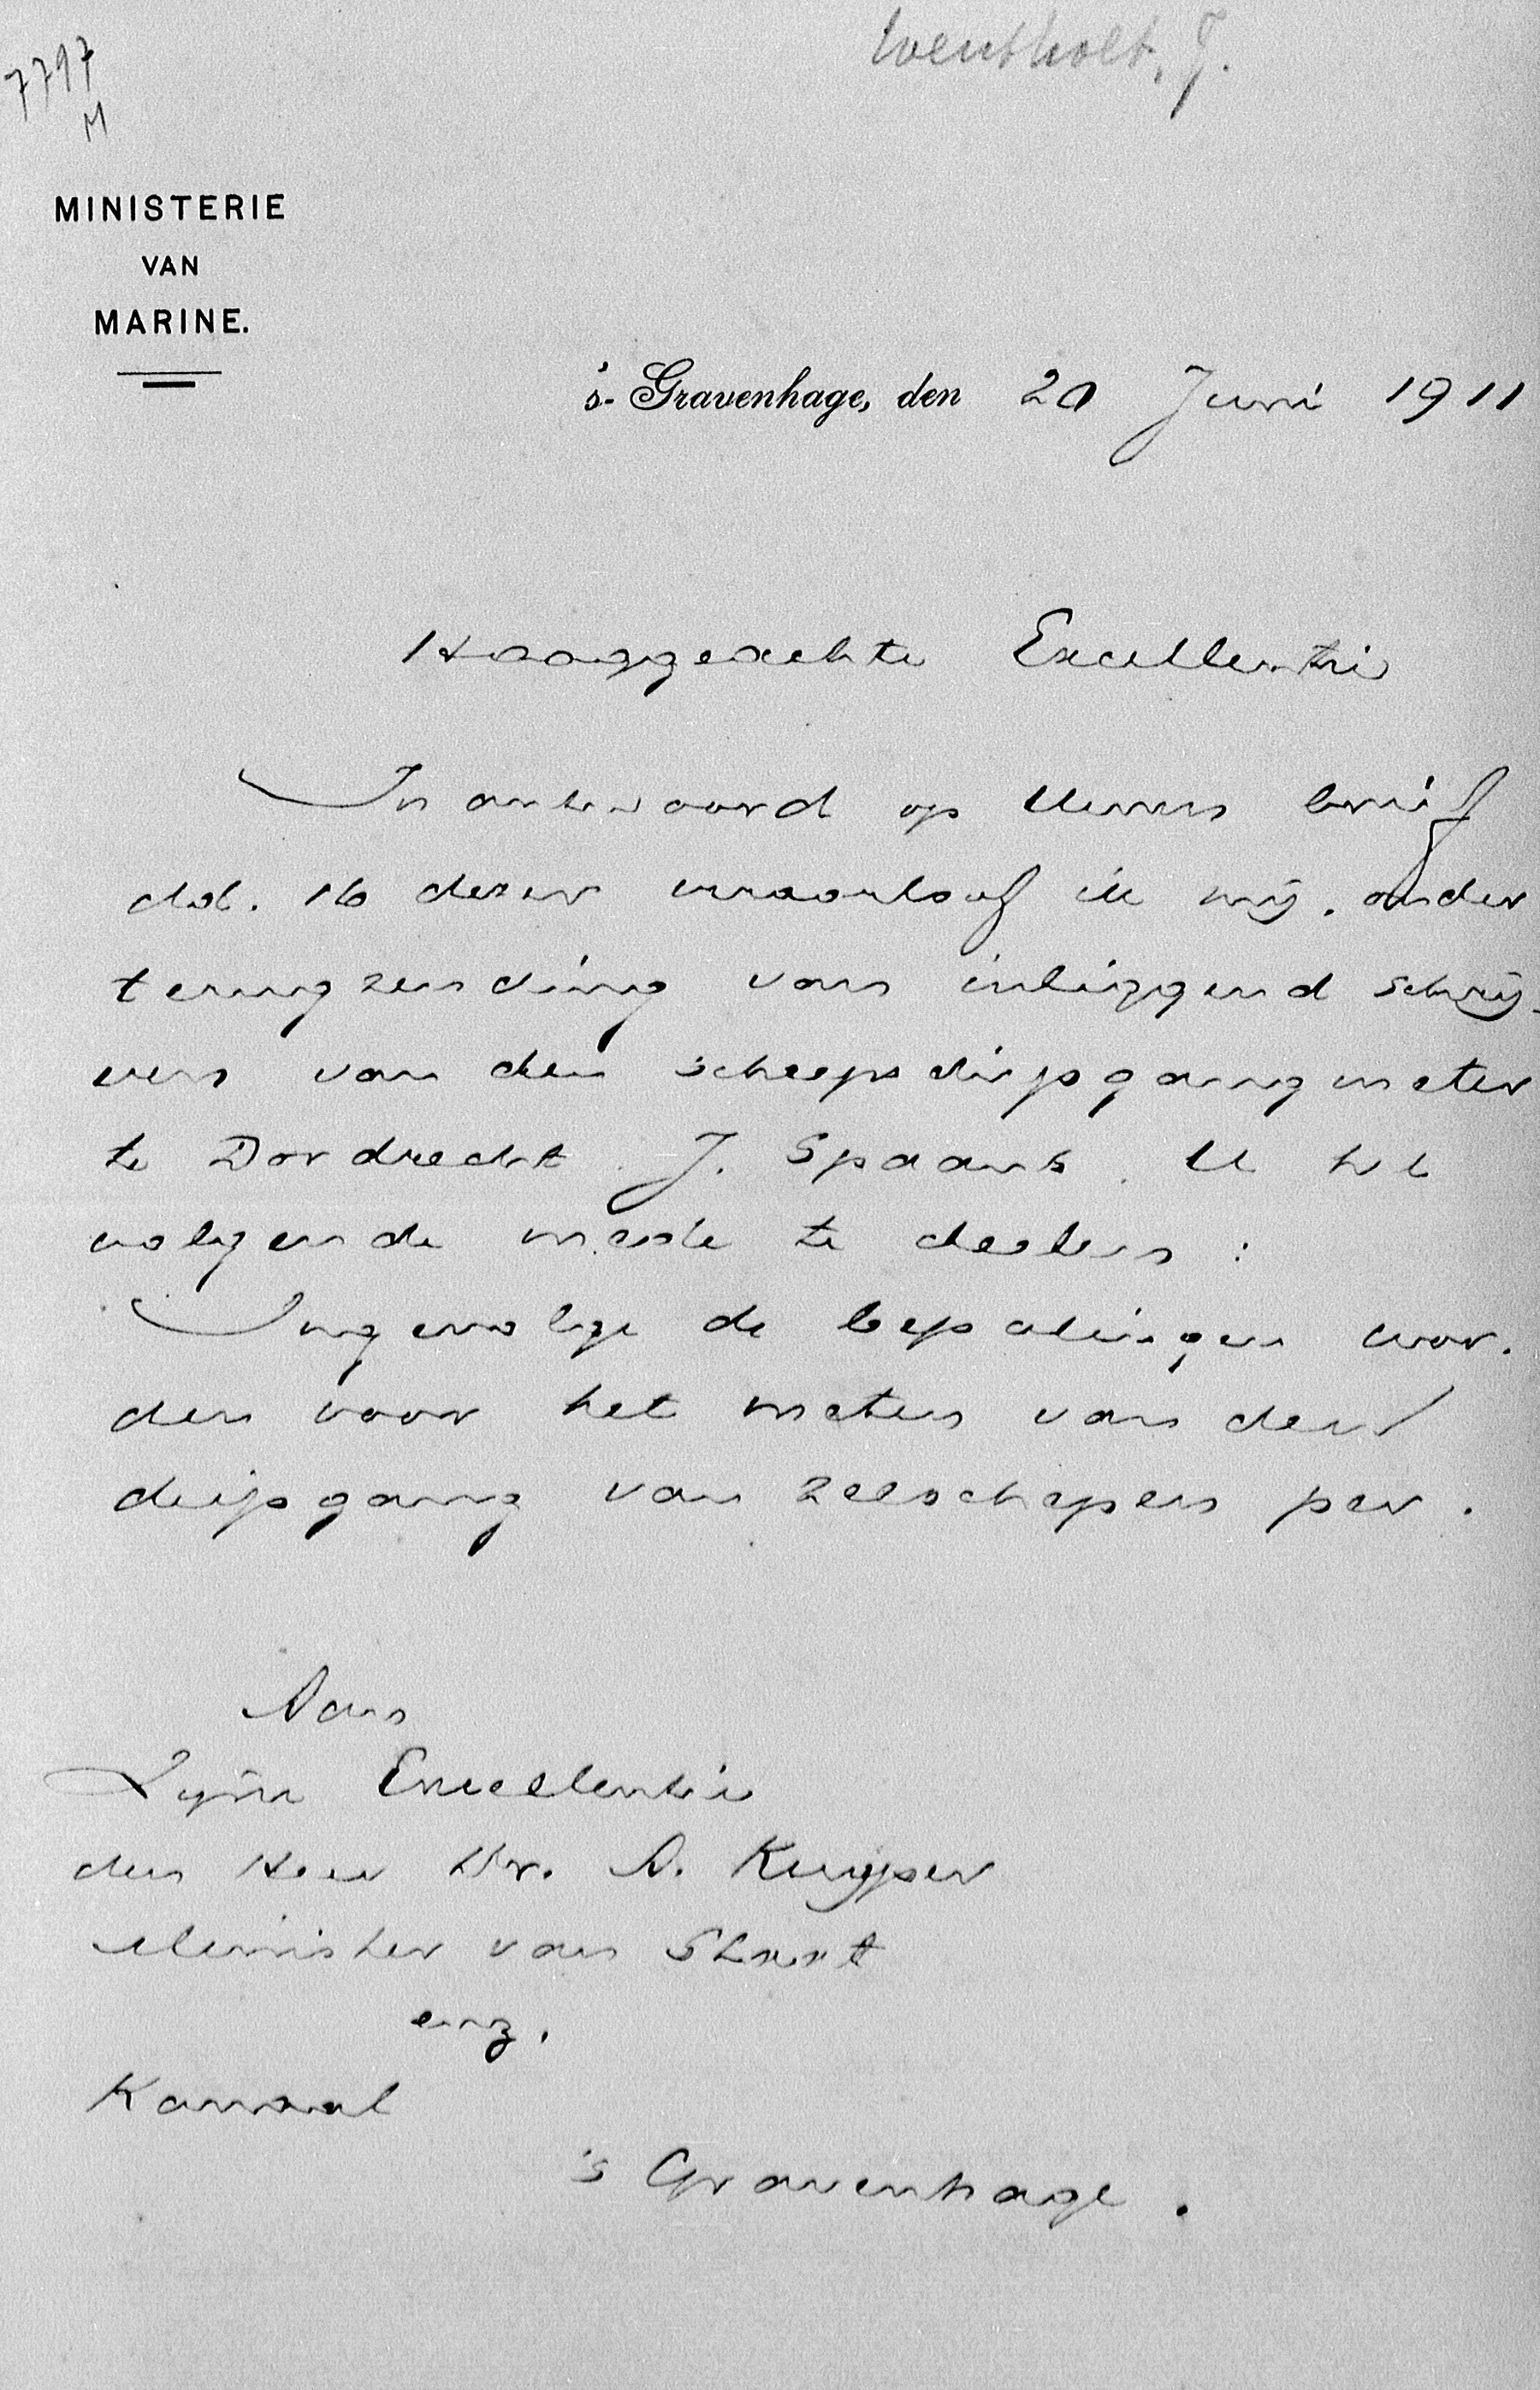 Wentholt, J.
7797
M
MINISTERIE
VAN
MARINE.
's-Gravenhage, den 20 Juni 1911
Hooggeachte Excellentie
In antwoord op Uwen brief
dd. 16 dezer veroorloof ik mij, onder
terugzending van inliggend schrij-
ven van den scheepsdiepgangmeter
te Dordrecht J. Spaans, U het
volgende mede te deelen :
Ingevolge de bepalingen wor-
den voor het meten van den
diepgang van zeeschepen per-
Aan
Zijne Excellentie
den Heer Dr. A. Kuyper
Minister van Staat
enz.
Kanaal
's Gravenhage.